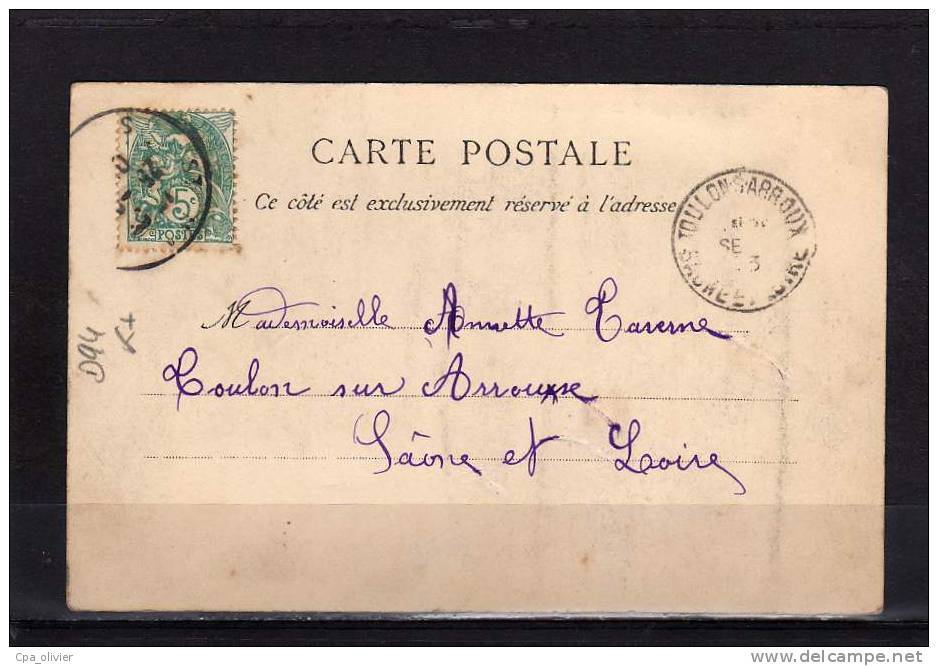 CARTE POSTALE
Ce côté est exclusivement réservé à l'adresse
5
POSTES
TOULON-S-ARROUX
SE
3
SAONE ET LOIRE
Mademoiselle Annette Taserne
Toulon sur Arrouxe
Sâone et Loire
D94
Cpa_olivier
www.delcampe.net